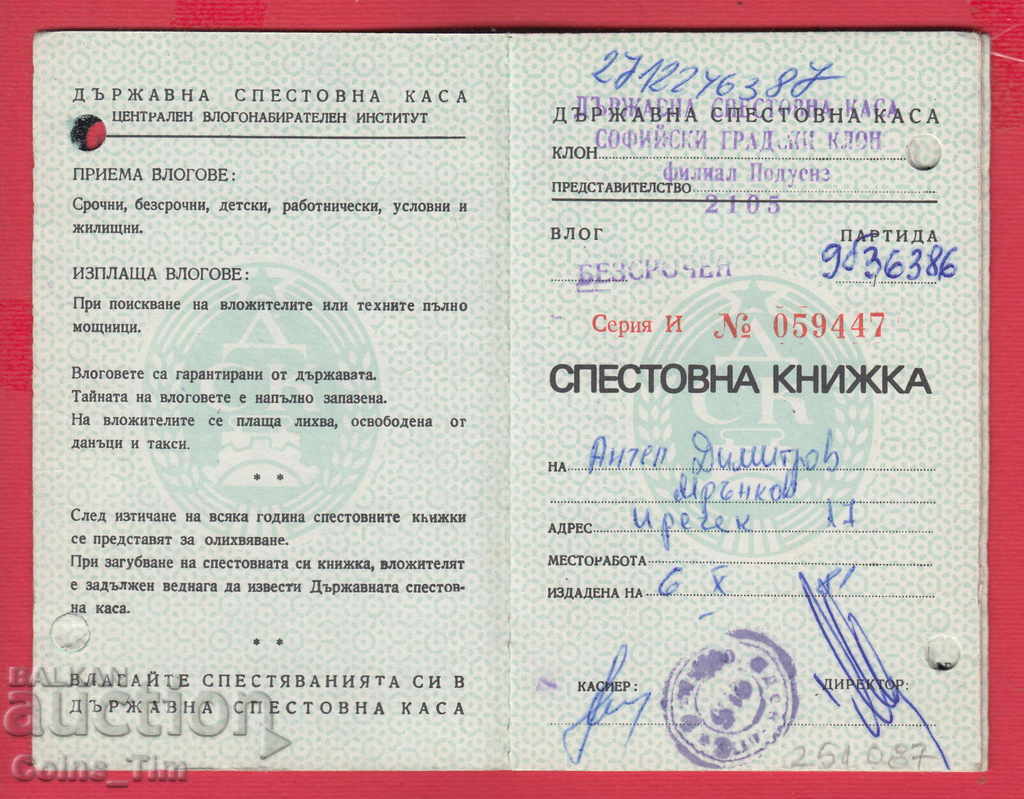 ДЪРЖАВНА СПЕСТОВНА КАСА
ЦЕНТРАЛЕН ВЛОГОНАБИРАТЕЛЕН ИНСТИТУТ
ПРИЕМА ВЛОГОВЕ:
Срочни, безсрочни, детски, работнически, условни и
жилищни.
ИЗПЛАЩА ВЛОГОВЕ:
При поискване на вложителите или техните пълно
мощници.
Влоговете са гарантирани от държавата.
Тайната на влоговете е напълно запазена.
На вложителите се плаща лихва, освободена от
данъци и такси.
* *
След изтичане на всяка година спестовните книжки
се представят за олихвяване.
При загубване на спестовната си книжка, вложителят
е задължен веднага да извести Държавната спестов-
на каса.
* *
ВЛАГАЙТЕ СПЕСТЯВАНИЯТА СИ В
ДЪРЖАВНА СПЕСТОВНА КАСА
BALKAN
auction
Coins_Tim
ДЪРЖАВНА СПЕСТОВНА КАСА
ДЪРЖАВНА СПЕСТОВНА КАСА
СОФИЙСКИ ГРАДСКИ КЛОН
КЛОН
филиал Подуене
ПРЕДСТАВИТЕЛСТВО
2105
ВЛОГ ПАРТИДА
БЕЗСРОЧЕН 9636386
Серия И № 059447
ДСК
СПЕСТОВНА КНИЖКА
НА Ангел Димитров
Мрънков
АДРЕС Иречек 17
МЕСТОРАБОТА
ИЗДАДЕНА НА 6 X
КАСИЕР: ДИРЕКТОР:
251087